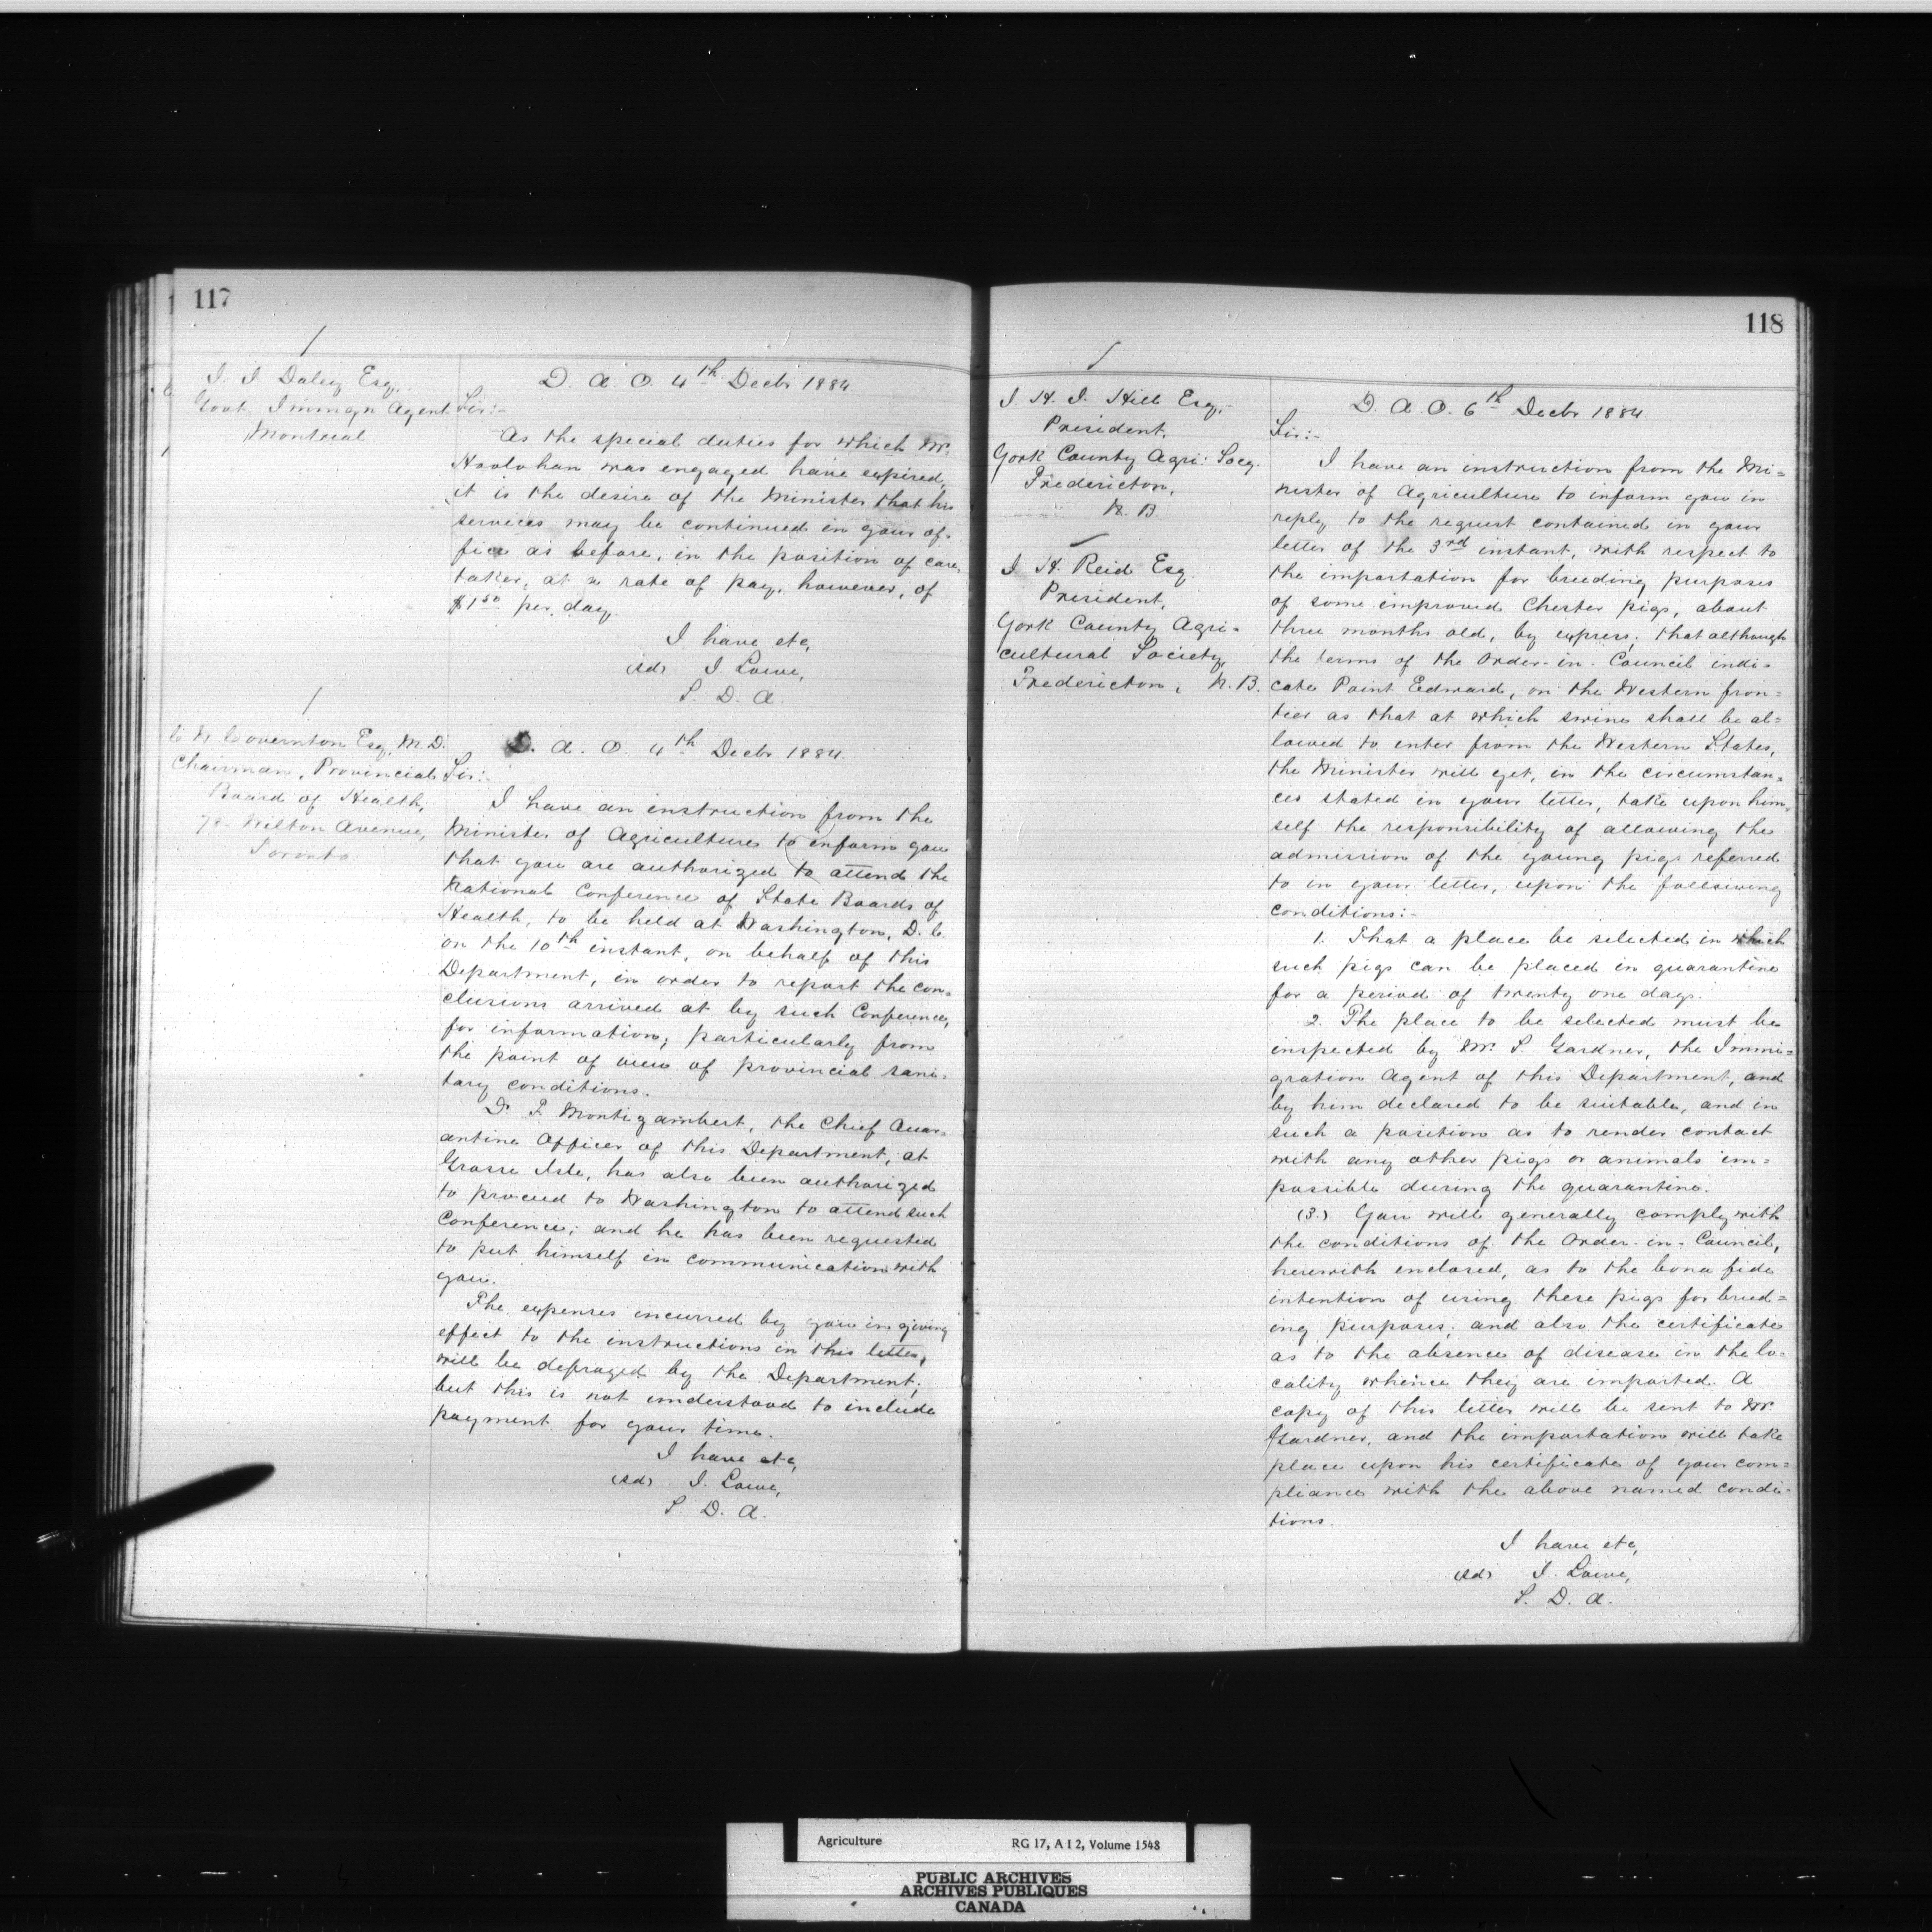 117
J. J. Daley Esq.
Govt. Immgn Agent
Montreal
D. A. O. 4th Decbr 1884.
Sir:-
As the special duties for which Mr.
Hoolohan was engaged have expired,
it is the desire of the Minister that his
services may be continued in your of-
fice as before, in the position of care-
taker, at a rate of pay, however, of
$1.50 per day.
I have etc,
(sd) J. Lowe,
S. D. A.
C. W. Covernton Esq. M.D.
Chairman, Provincial
Board of Health,
Wilton Avenue,
Toronto
D. A. O. 4th Decbr 1884.
Sir:-
I have an instruction from the
Minister of Agriculture to inform you
that you are authorized to attend the
National Conference of State Boards of
Health, to be held at Washington, D. C.
on the 10th instant, on behalf of this
Department, in order to report the con-
clusions arrived at by such Conference,
for information, particularly from
the point of view of provincial sani-
tary conditions.
Dr F. Montizambert, the Chief Quar-
antine Officer of this Department, at
Grosse Isle, has also been authorized
to proceed to Washington to attend such
Conference; and he has been requested
to put himself in communication with
you.
The expenses incurred by you in giving
effect to the instructions in this letter,
will be defrayed by the Department;
but this is not understood to include
payment for your time.
I have etc,
(sd) J. Lowe,
S. D. A.
118
J. H. J. Hill Esq,
President,
York County Agri: Socy.
Fredericton,
N. B.
J H. Reid Esq.
President,
York County Agri-
cultural Society,
Fredericton, N. B.
D. A. O. 6th Decbr 1884.
Sir:-
I have an instruction from the Mi=
nister of Agriculture to inform you in
reply to the request contained in your
letter of the 3rd instant, with respect to
the importation for breeding purposes
of some improved Chester pigs, about
three months old, by express; that although
the terms of the Order-in-Council indi=
cate Point Edward, on the Western fron=
tier as that at which swine shall be al=
lowed to enter from the Western States,
the Minister will yet, in the circumstan=
ces stated in your letter, take upon him=
self the responsibility of allowing the
admission of the young pigs referred
to in your letter, upon the following
conditions:-
1. That a place be selected in which
such pigs can be placed in quarantine
for a period of twenty one days.
2. The place to be selected must be
inspected by Mr. S. Gardner, the Immi=
gration Agent of this Department, and
by him declared to be suitable, and in
such a position as to render contact
with any other pigs or animals im=
possible during the quarantine.
(3.) You will generally comply with
the conditions of the Order-in-Council,
herewith enclosed, as to the bona fide
intention of using these pigs for breed=
ing purposes; and also the certificate
as to the absence of disease in the lo=
cality whence they are imported. A
copy of this letter will be sent to Mr.
Gardner, and the importation will take
place upon his certificate of your com=
pliance with the above named condi-
tions.
I have etc,
(sd) J. Lowe,
S. D. A.
Agriculture RG 17, A I 2, Volume 1548
PUBLIC ARCHIVES
ARCHIVES PUBLIQUES
CANADA